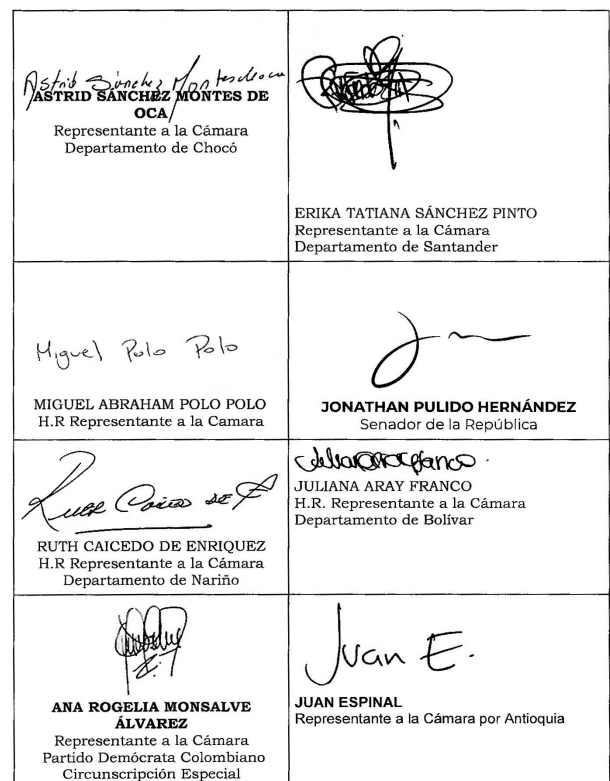 Astrid Sánchez Montes de oca
ASTRID SÁNCHEZ MONTES DE
OCA
Representante a la Cámara
Departamento de Chocó
ERIKA TATIANA SÁNCHEZ PINTO
Representante a la Cámara
Departamento de Santander
Miguel Polo Polo
MIGUEL ABRAHAM POLO POLO
H.R Representante a la Camara
JONATHAN PULIDO HERNÁNDEZ
Senador de la República
Ruth Caicedo de E
RUTH CAICEDO DE ENRIQUEZ
H.R Representante a la Cámara
Departamento de Nariño
JULIANA ARAY FRANCO
H.R. Representante a la Cámara
Departamento de Bolívar
ANA ROGELIA MONSALVE
ÁLVAREZ
Representante a la Cámara
Partido Demócrata Colombiano
Circunscripción Especial
Juan E.
JUAN ESPINAL
Representante a la Cámara por Antioquia